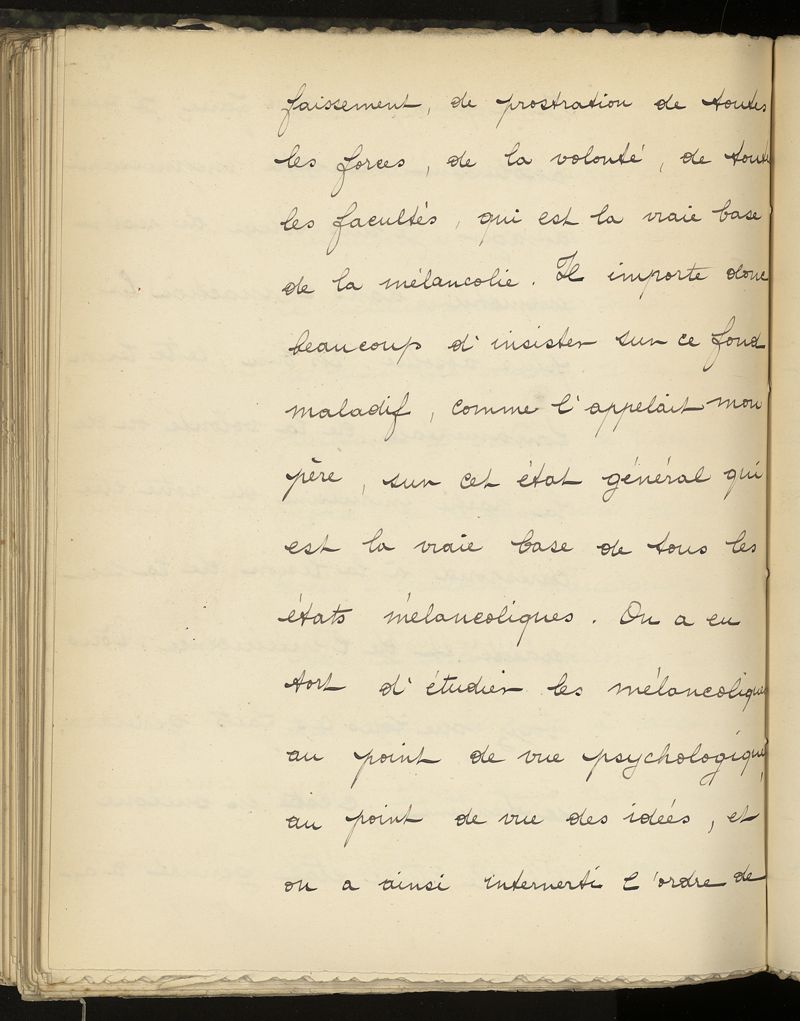 faissement, de prostration de toutes
les forces, de la volonté, de toutes
les facultés, qui est la vraie base
de la mélancolie. Il importe donc
beaucoup d'insister sur ce fond
maladif, comme l'appelait mon
père, sur cet état général qui
est la vraie base de tous les
états mélancoliques. On a eu
tort d'étudier les mélancoliques
au point de vue psychologique,
au point de vue des idées, et
on a ainsi interverti l'ordre de